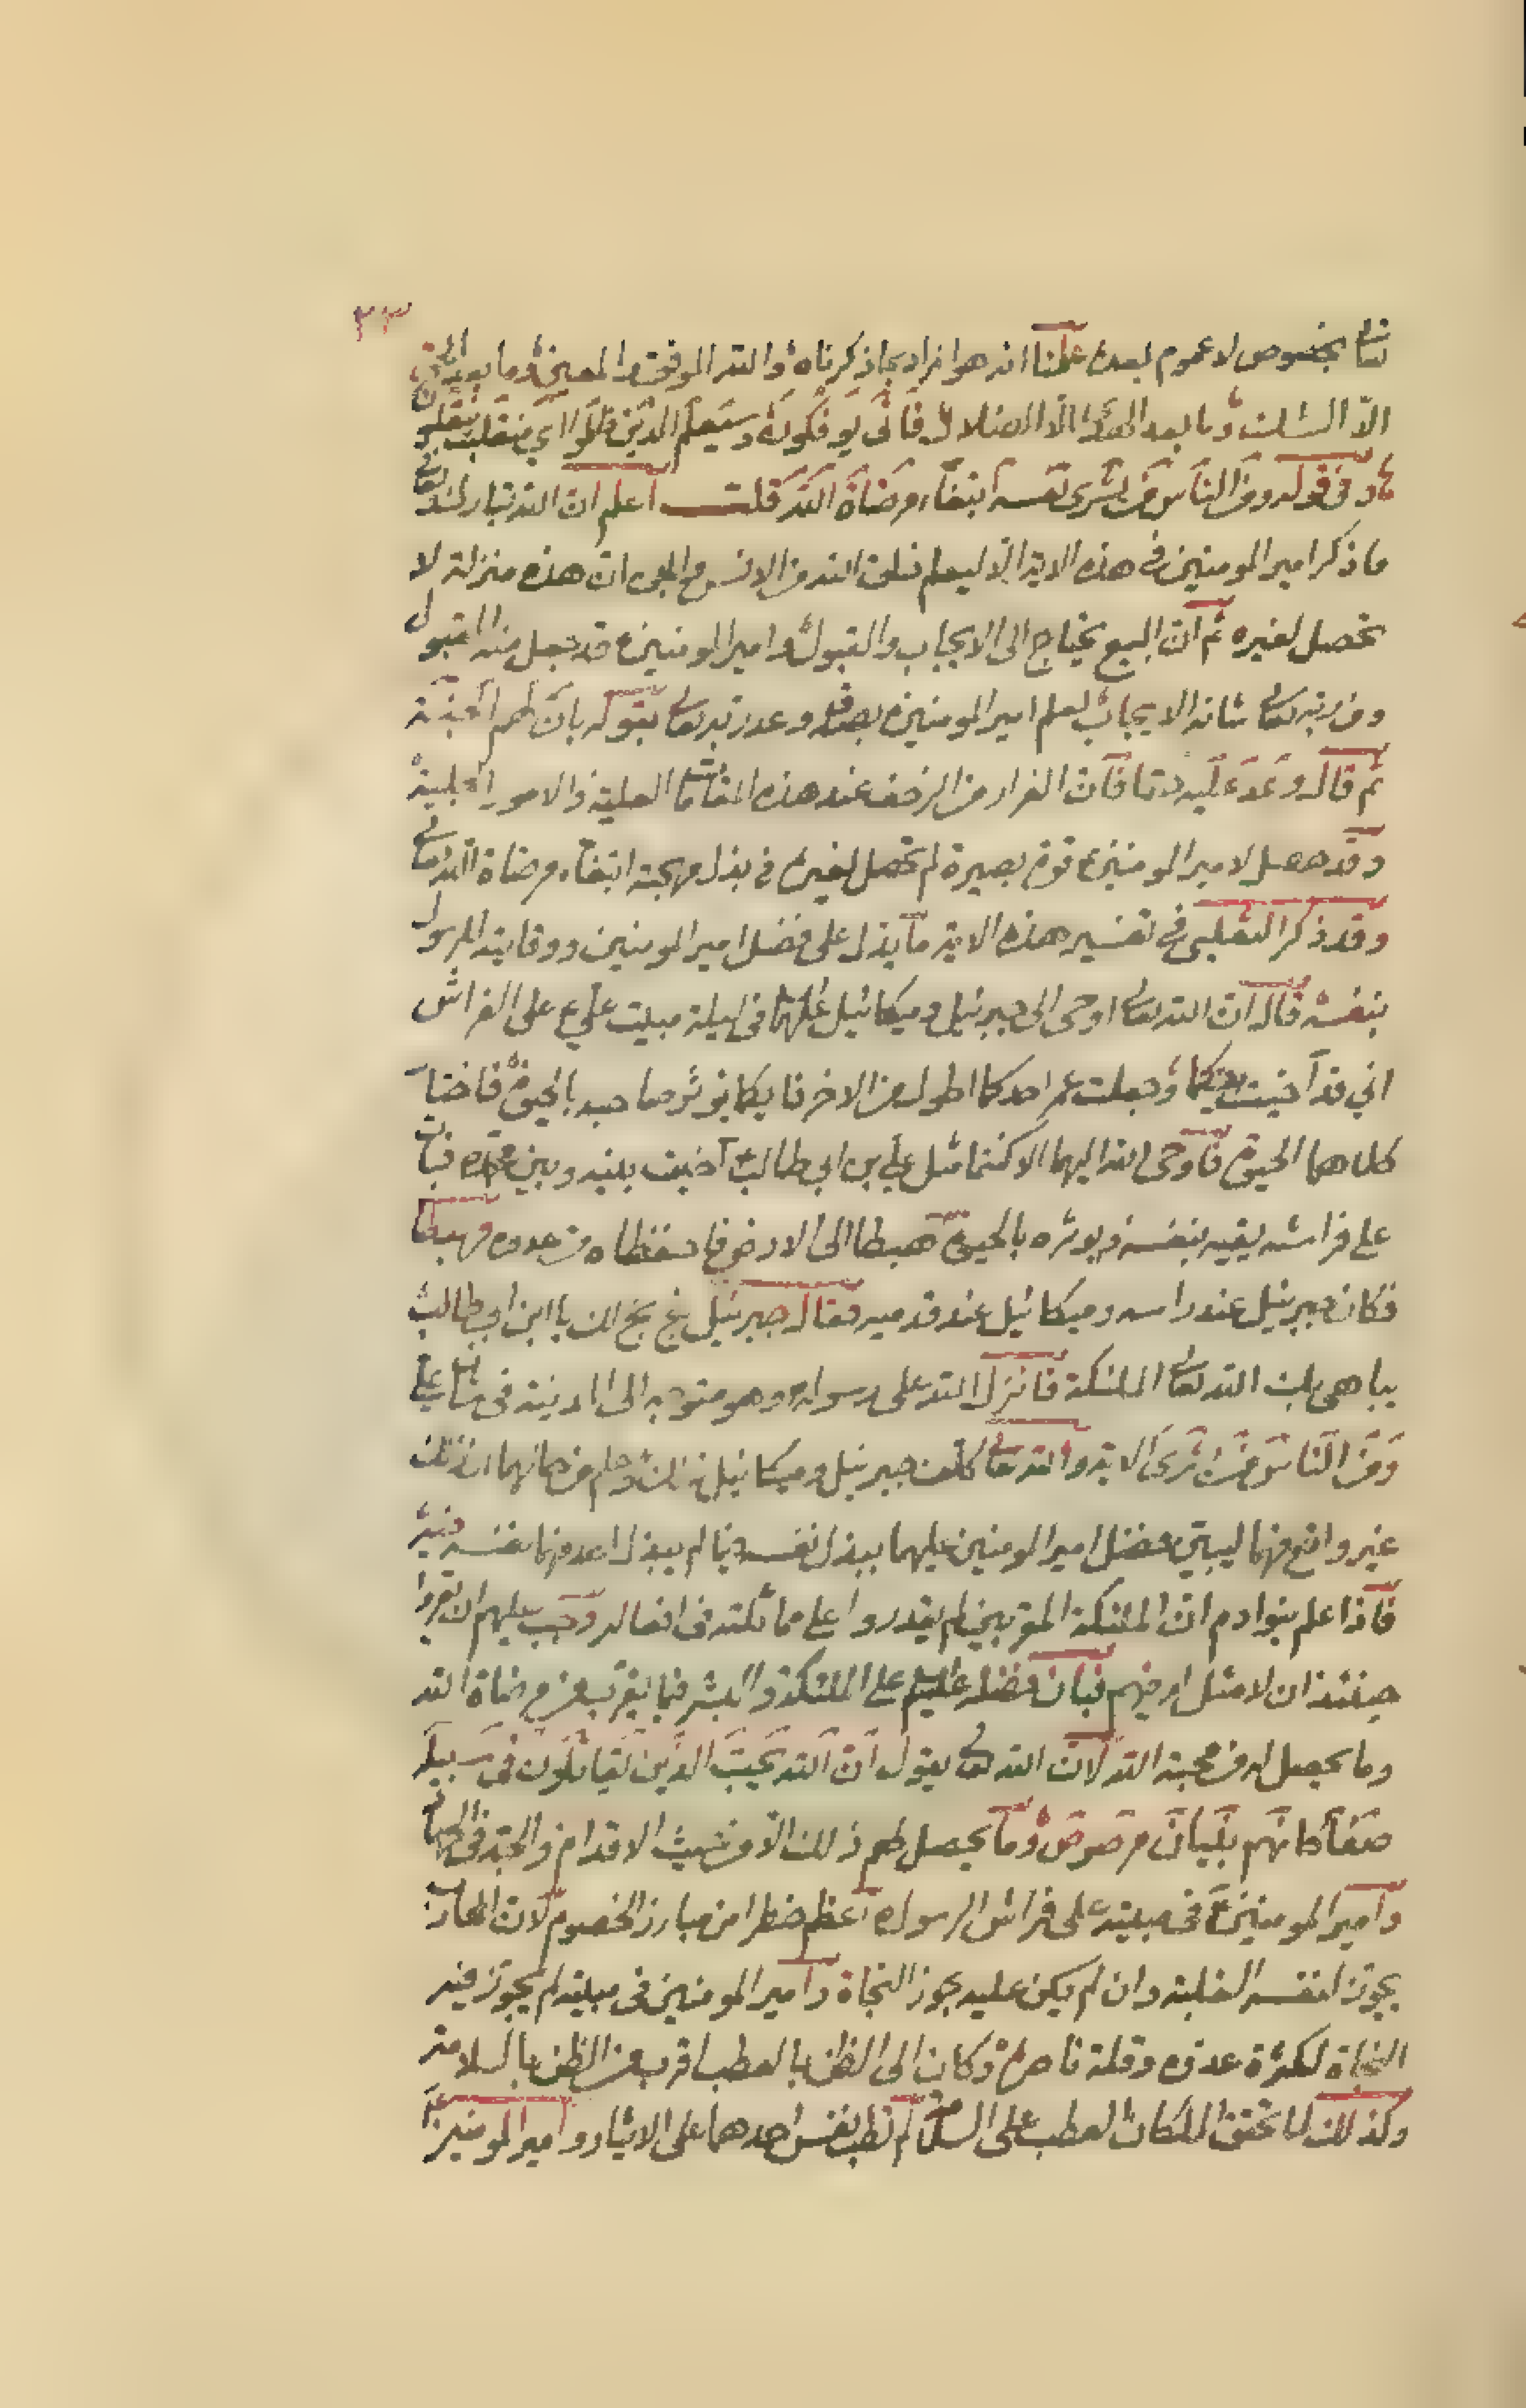 ٣٣
تعالى بخصوص لا عموم بعده علمنا انه هو المراد بما ذكرناه والله الموفق والمعين وما بعد الحق
الّا الشك وما بعد الهدى الّا الضلال فَاَنّى يُوفكون وَسَيَعلَم الّذين ظَلَمُوا اي مُنقَلَب يَنقَلِبُون
مادة في قوله ومن النَاس من يشرى نفسه ابتغاء مرضَاة الله قلت اعلم ان الله تبارك وتعالى
ما ذكر امير المومنين في هذه الاية الّا ليعلم خلق الله من الانس والجن ان هذه منزلة لا
تحصل لغيره ثم انّ البيع يحتاج الى الايجاب والقبول وامير المومنين ع قد حصل منه القبول
ومن ربه تعالى شانه الايجاب لعلم امير المومنين بصدق وعد ربه تعالى بقوله بانّ لهم الجنّة
ثم قال وَعدَ عَلَيه حقا فانّ الفرار من الزحف عند هذه المقامات العلية والامور الجلية
وقد حصل لامير المومنين ع قوة بصيرة لم تحصل لغيره في بذل مهجته ابتغاء مرضاة الله تعالى
وقد ذكر الثعلبي في تفسير هذه الاية ما يدل على فضل امير المومنين ووقايته للرسول
بنفسه قال ان الله تعالى اوحى الى جبرئيل وميكائيل عليهما في ليلة مبيت علي ع على الفراش
اني قد آخيت بينكما وجعلت عمر احدكما اطول من الاخر فايكما يوثر صاحبه بالحيوة فاختار
كلاهما الحيوة فاوحى الله اليهما الا كنتما مثل علي بن ابي طالب آخيت بينه وبين محمد فبات
على فراشه يقيه بنفسه ويوثره بالحيوة اهبطا الى الارض فاحفظاه من عدوه فهبطا
فكان جبرئيل عند راسه وميكائيل عند قدميه فقال جبرئيل بخ بخ لك يا ابن ابي طالب
يباهى بك الله تعالى الملئكة فانزل الله على رسوله وهو متوجه الى المدينة في شان علي
وَمِن النَّاس مَن يَشرى الاية والله تعالى كلف جبرئيل وميكائيل ذلك وعلم من حالهما ان ذلك
غير واقع منهما ليبيّن فضل امير المومنين عليهما ببذل نفسه فيما لم يبذل احد منهما نفسه فيه
فاذا علم بنو ادم ان الملئكة المقربين لم يقدروا على مماثلته في افعاله وجب عليهم ان يقروا
حينئذ ان لا مثل له فيهم فبان فضله عليه السلم على الملئكة والبشر فيما يقرب من مرضاة الله
وما يحصل له من محبة الله لان الله تعالى يقول انّ الله يُحِبّ الّذين يُقاتلُون في سَبيله
صَفّاً كانهم بُنيان مرصُوص وما يحصل لهم ذلك الّا من حيث الاقدام والجد في الجهاد
وامير المومنين ع في مبيته على فراش الرسول اعظم خطرا من مبارز الخصوم لان المحارب
يجوّز لنفسه الغلبة وان لم يكن عليه يجوز النجاة وامير المومنين في مبيته لم يجوّز فيه
النجاة لكثرة عدوه وقلة ناصره وكان الى الظن بالعطب اقرب من الظن بالسلامة
وكذلك لما تحقق الملكان العطب على السلامة لم تطب نفس احدهما على الايثار وامير المومنين ع